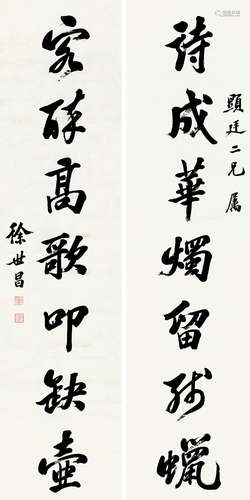 詩成華燭留殘蠟
顯廷二兄属
客醉高歌叩缺壺
徐世昌